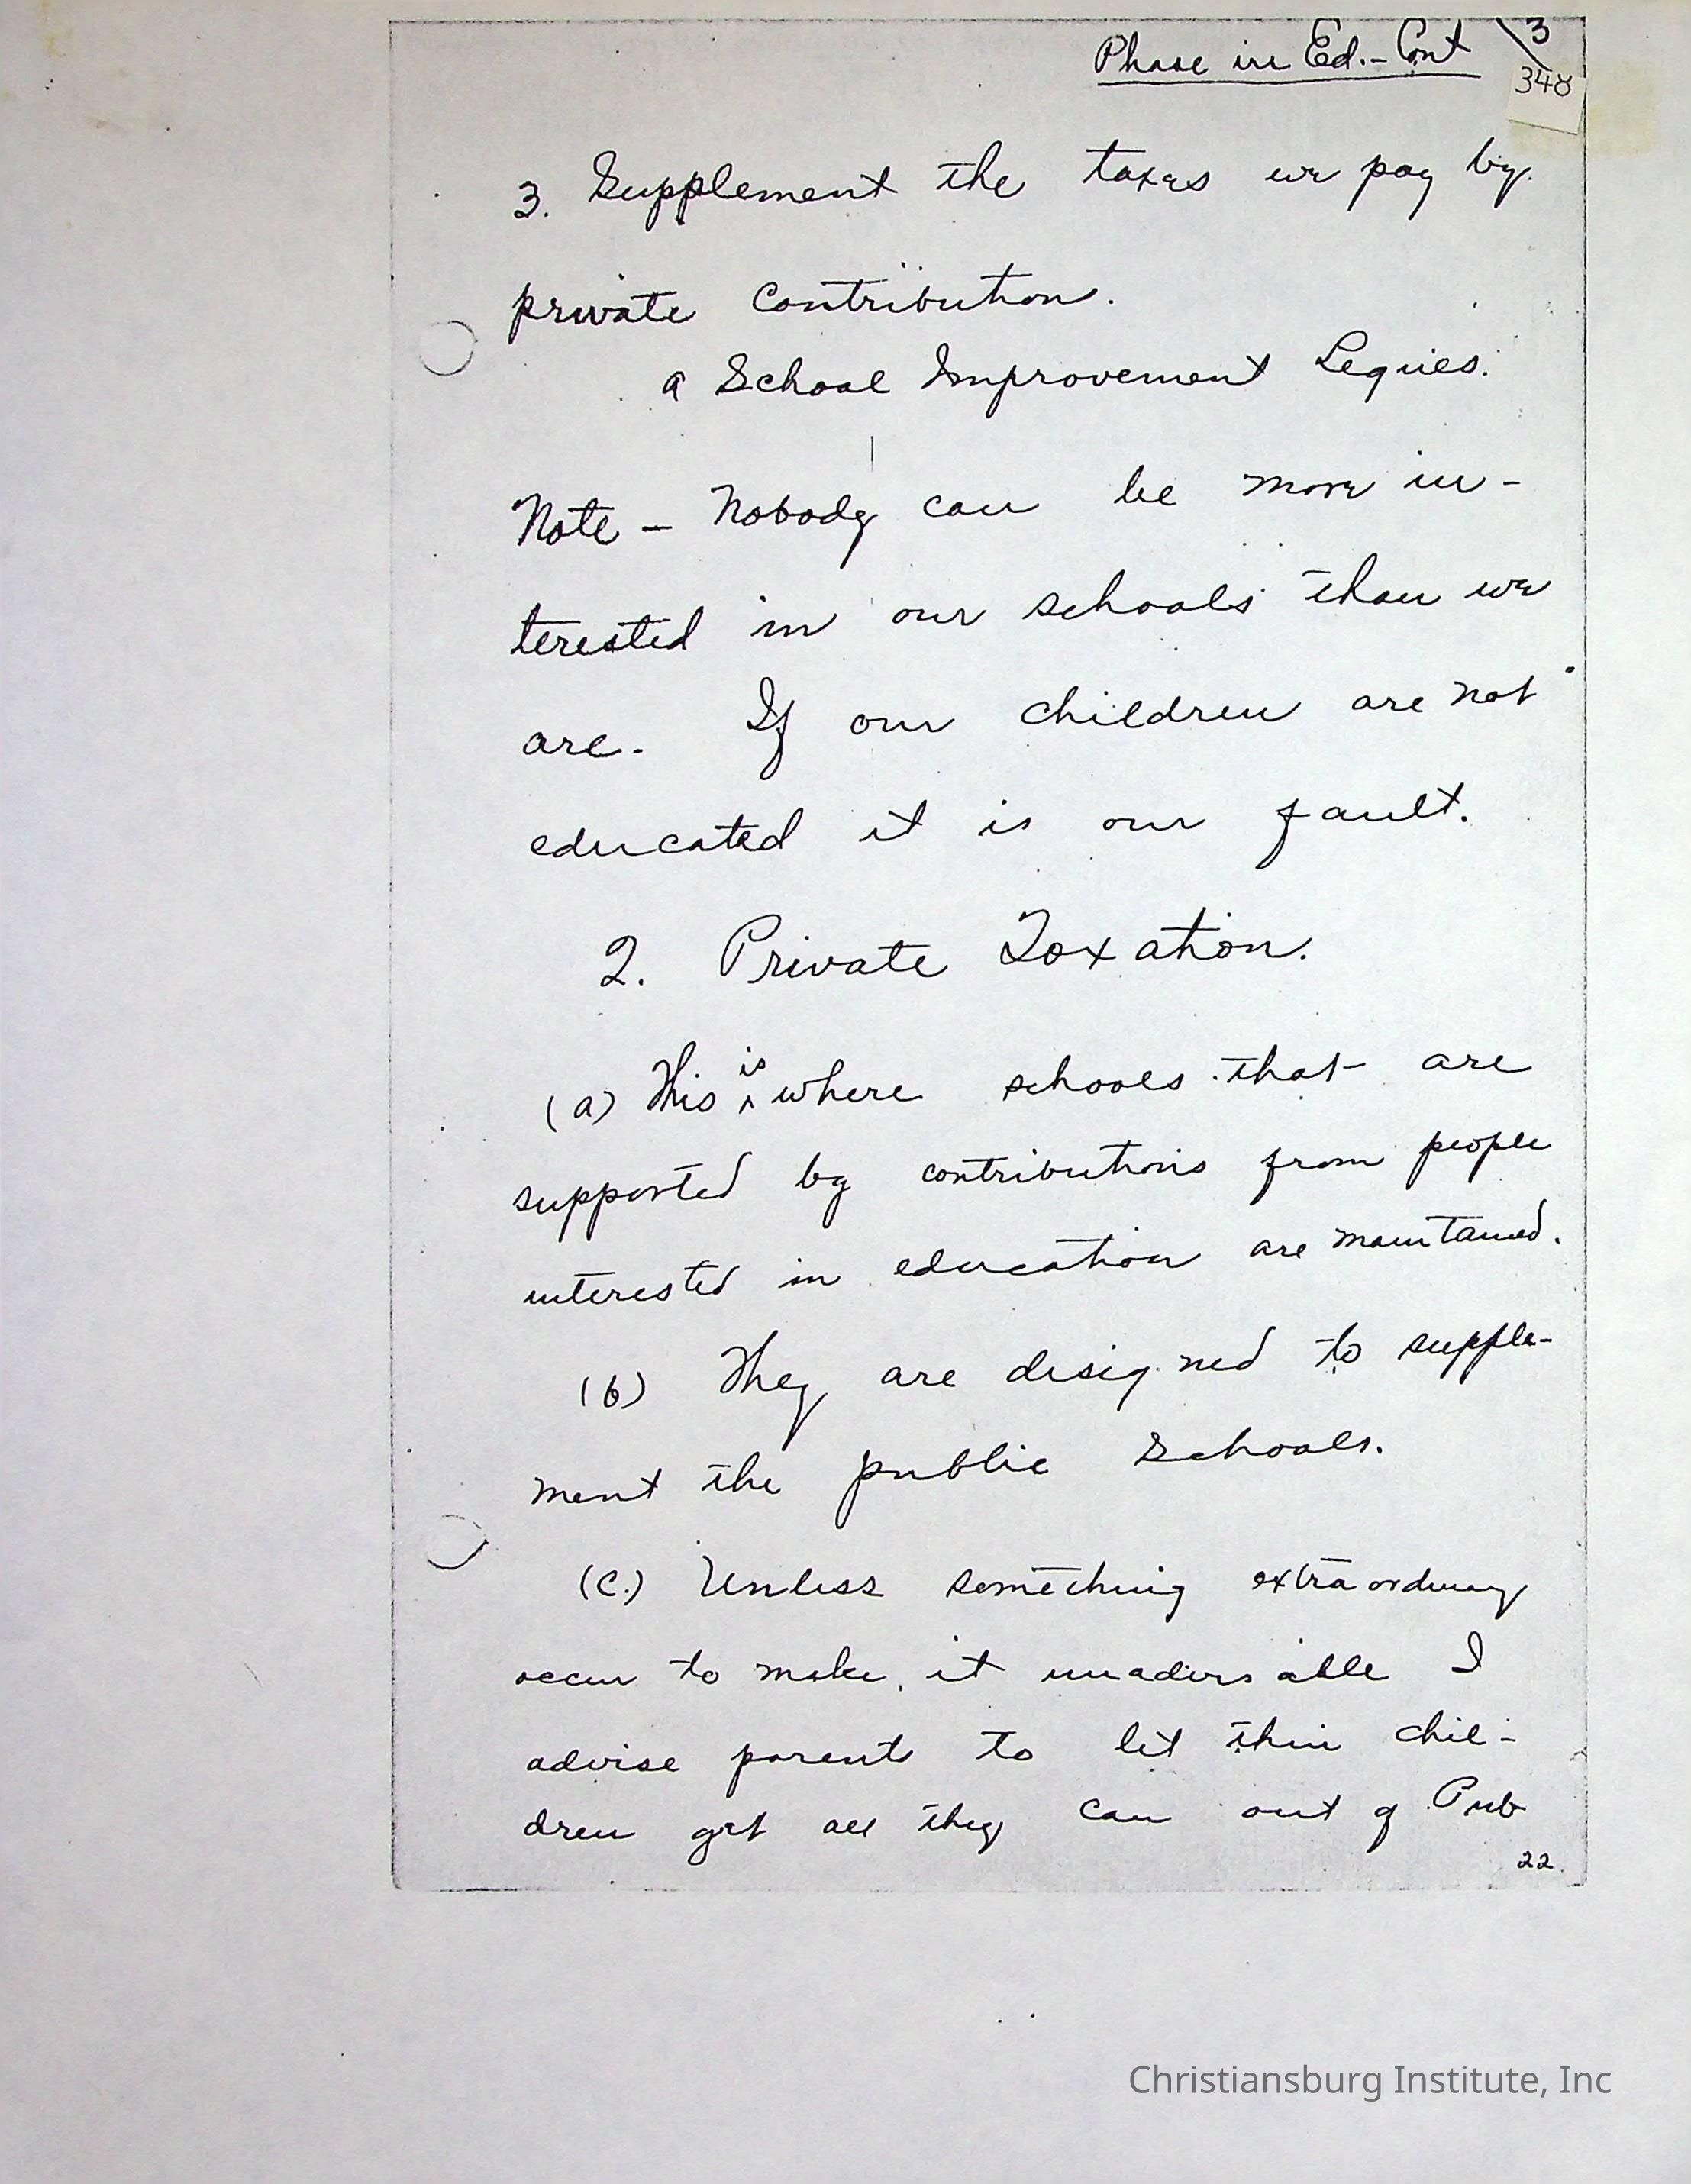 Phase in Ed. - Cont
3
348
3. Supplement the taxes we pay by
private contribution.
a School Improvement Legues.
Note - Nobody can be more in-
terested in our schools than we
are. If our children are not
educated it is our fault.
2. Private Taxation.
(a) This is where schools that are
supported by contributions from people
interested in education are maintained.
(b) They are designed to supple-
ment the public Schools.
(c.) Unless something extraordinary
occur to make it unadvisable I
advise parent to let their chil-
dren get all they can out of Pub
22
Christiansburg Institute, Inc